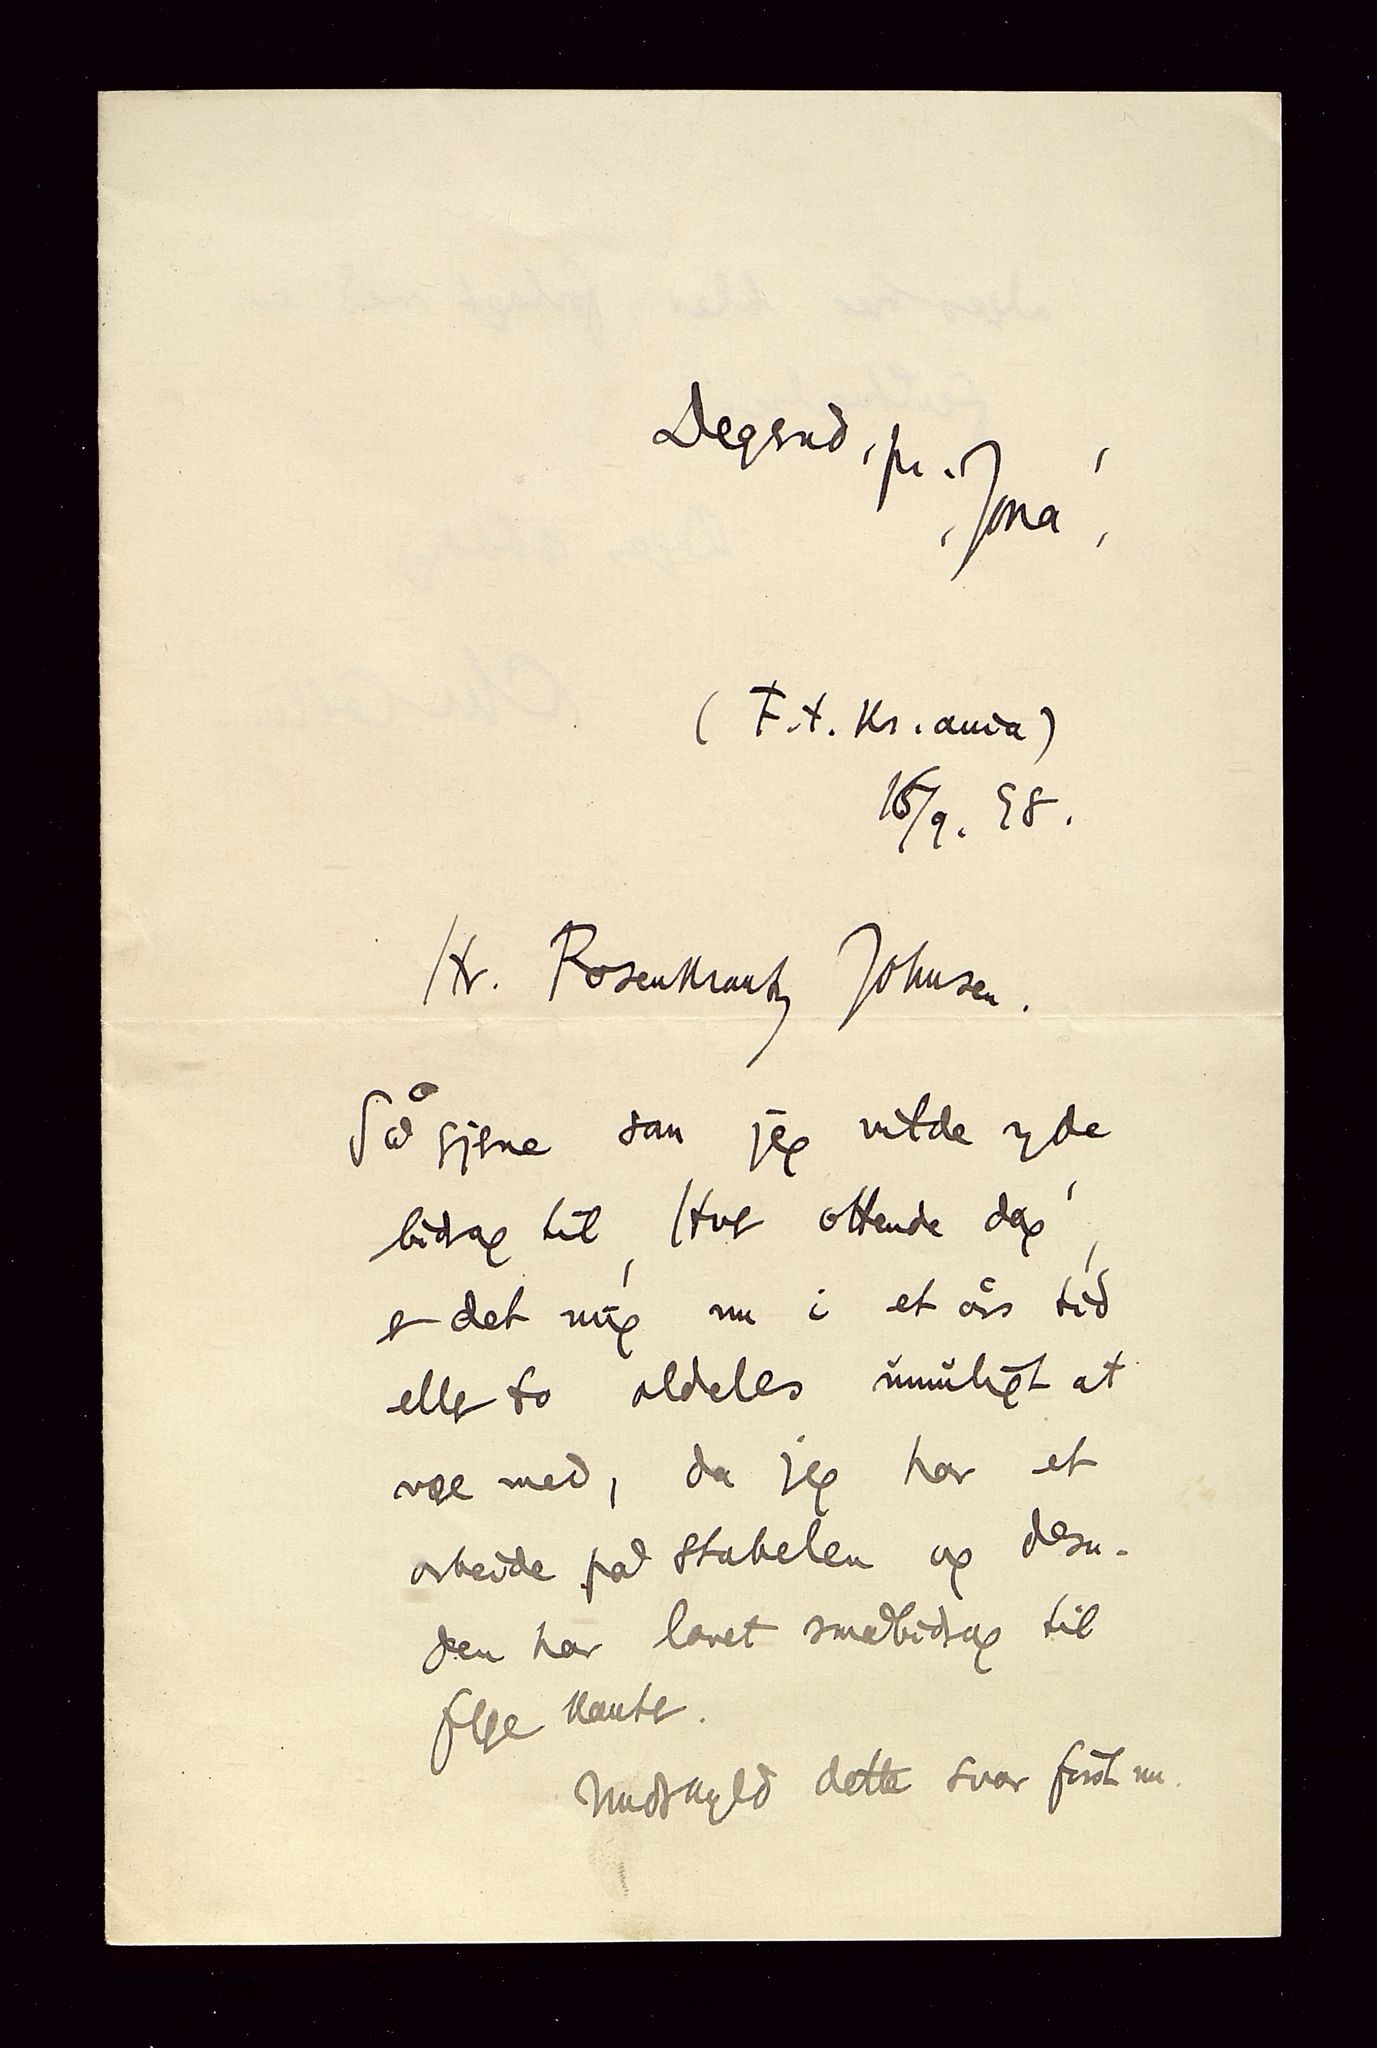 Degerud, pr.
"Jona".
(F. t. Kr.ania)
15/9. 98.
Hr. Rosenkrantz Johnsen.
Så gjerne som jeg vilde yde
bidrag til "Hver ottende dag",
er det mig nu i et års tid
eller to aldeles umuligt at
være med, da jeg har et
arbeide på stabelen og desu-
den har lovet småbidrag til
flere kanter.
Undskyld dette svar først nu.